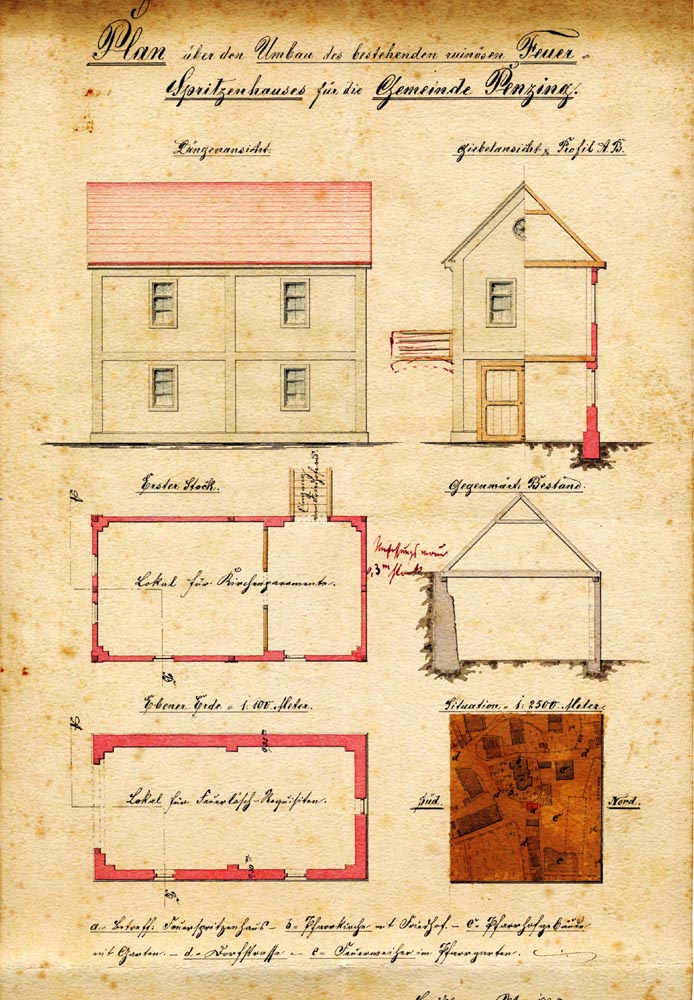 Plan über den Umbau des bestehenden ruinösen Feuer-
Spritzenhauses für die Gemeinde Penzing.
Längenansicht.
Giebelansicht & Profil A.B.
Erster Stock.
Gegenwärt. Bestand.
A
Eingang
0,3 m stark
Lokal für Kirchenparamente.
B
Ebener Erde = 1:100 Meter.
Situation = 1:2500 Meter.
A
Lokal für Feuerlösch-Requisiten.
Süd.
Nord.
B
a.= Betreff. Feuerspritzenhaus = b. Pfarrkirche mit Friedhof. = c. Pfarrhofgebäude
mit Garten. = d. = Dorfstrasse = e. = Feuerweiher im Pfarrgarten.